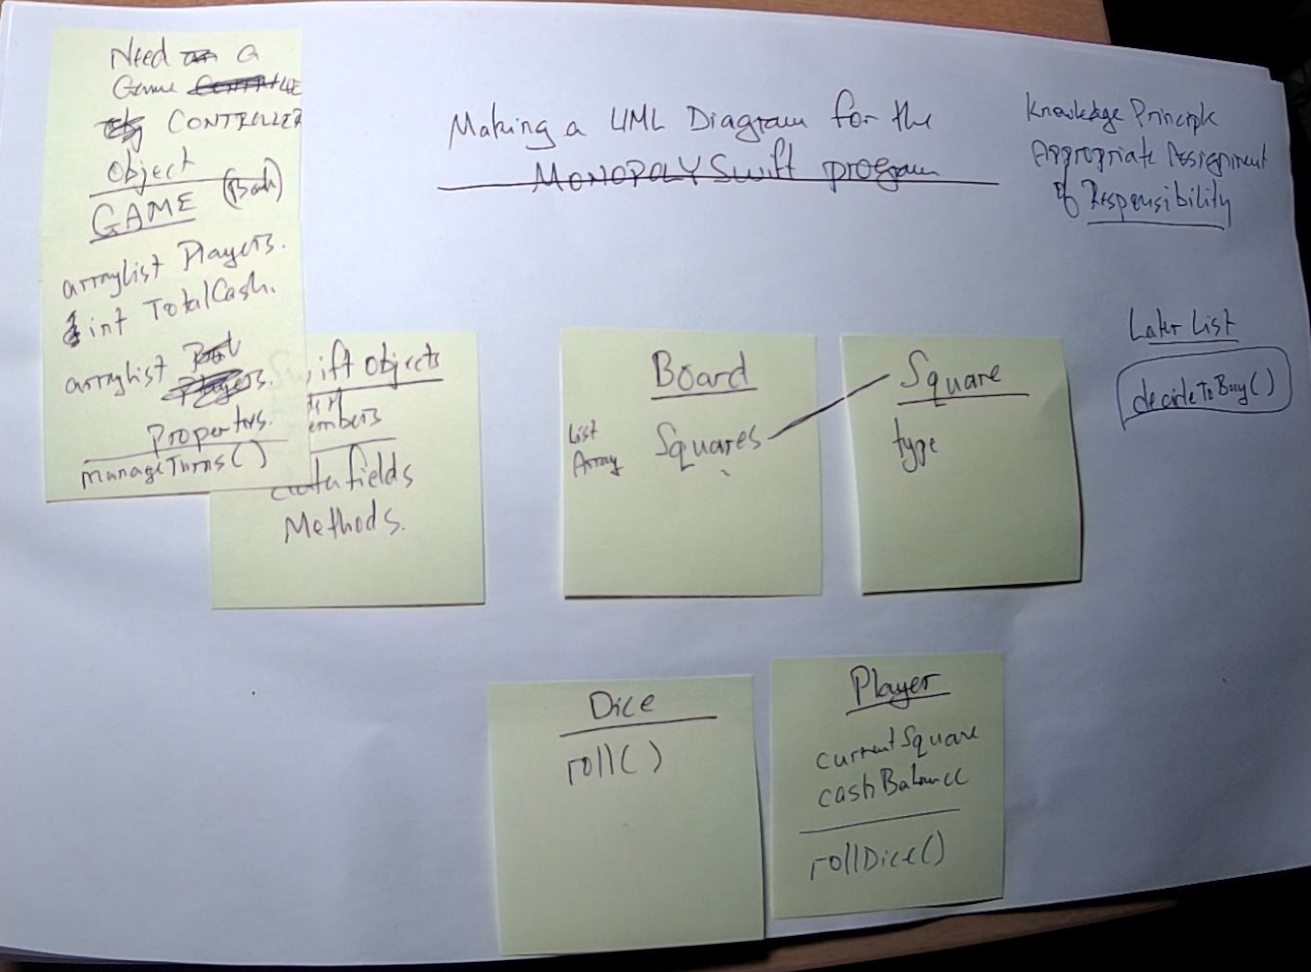 Need a
Game
CONTROLLER
object
GAME (Bank)
arraylist Players.
int TotalCash.
arraylist
Properties.
manageTurns()
Making a UML Diagram for the
MONOPOLY Swift program
Knowledge Principle
Appropriate Assignment
of Responsibility
Later List
decideToBuy()
Swift Objects
embers
data fields
Methods.
Board
List
Array
Squares
Square
type
Dice
roll()
Player
currentSquare
cashBalance
rollDice()